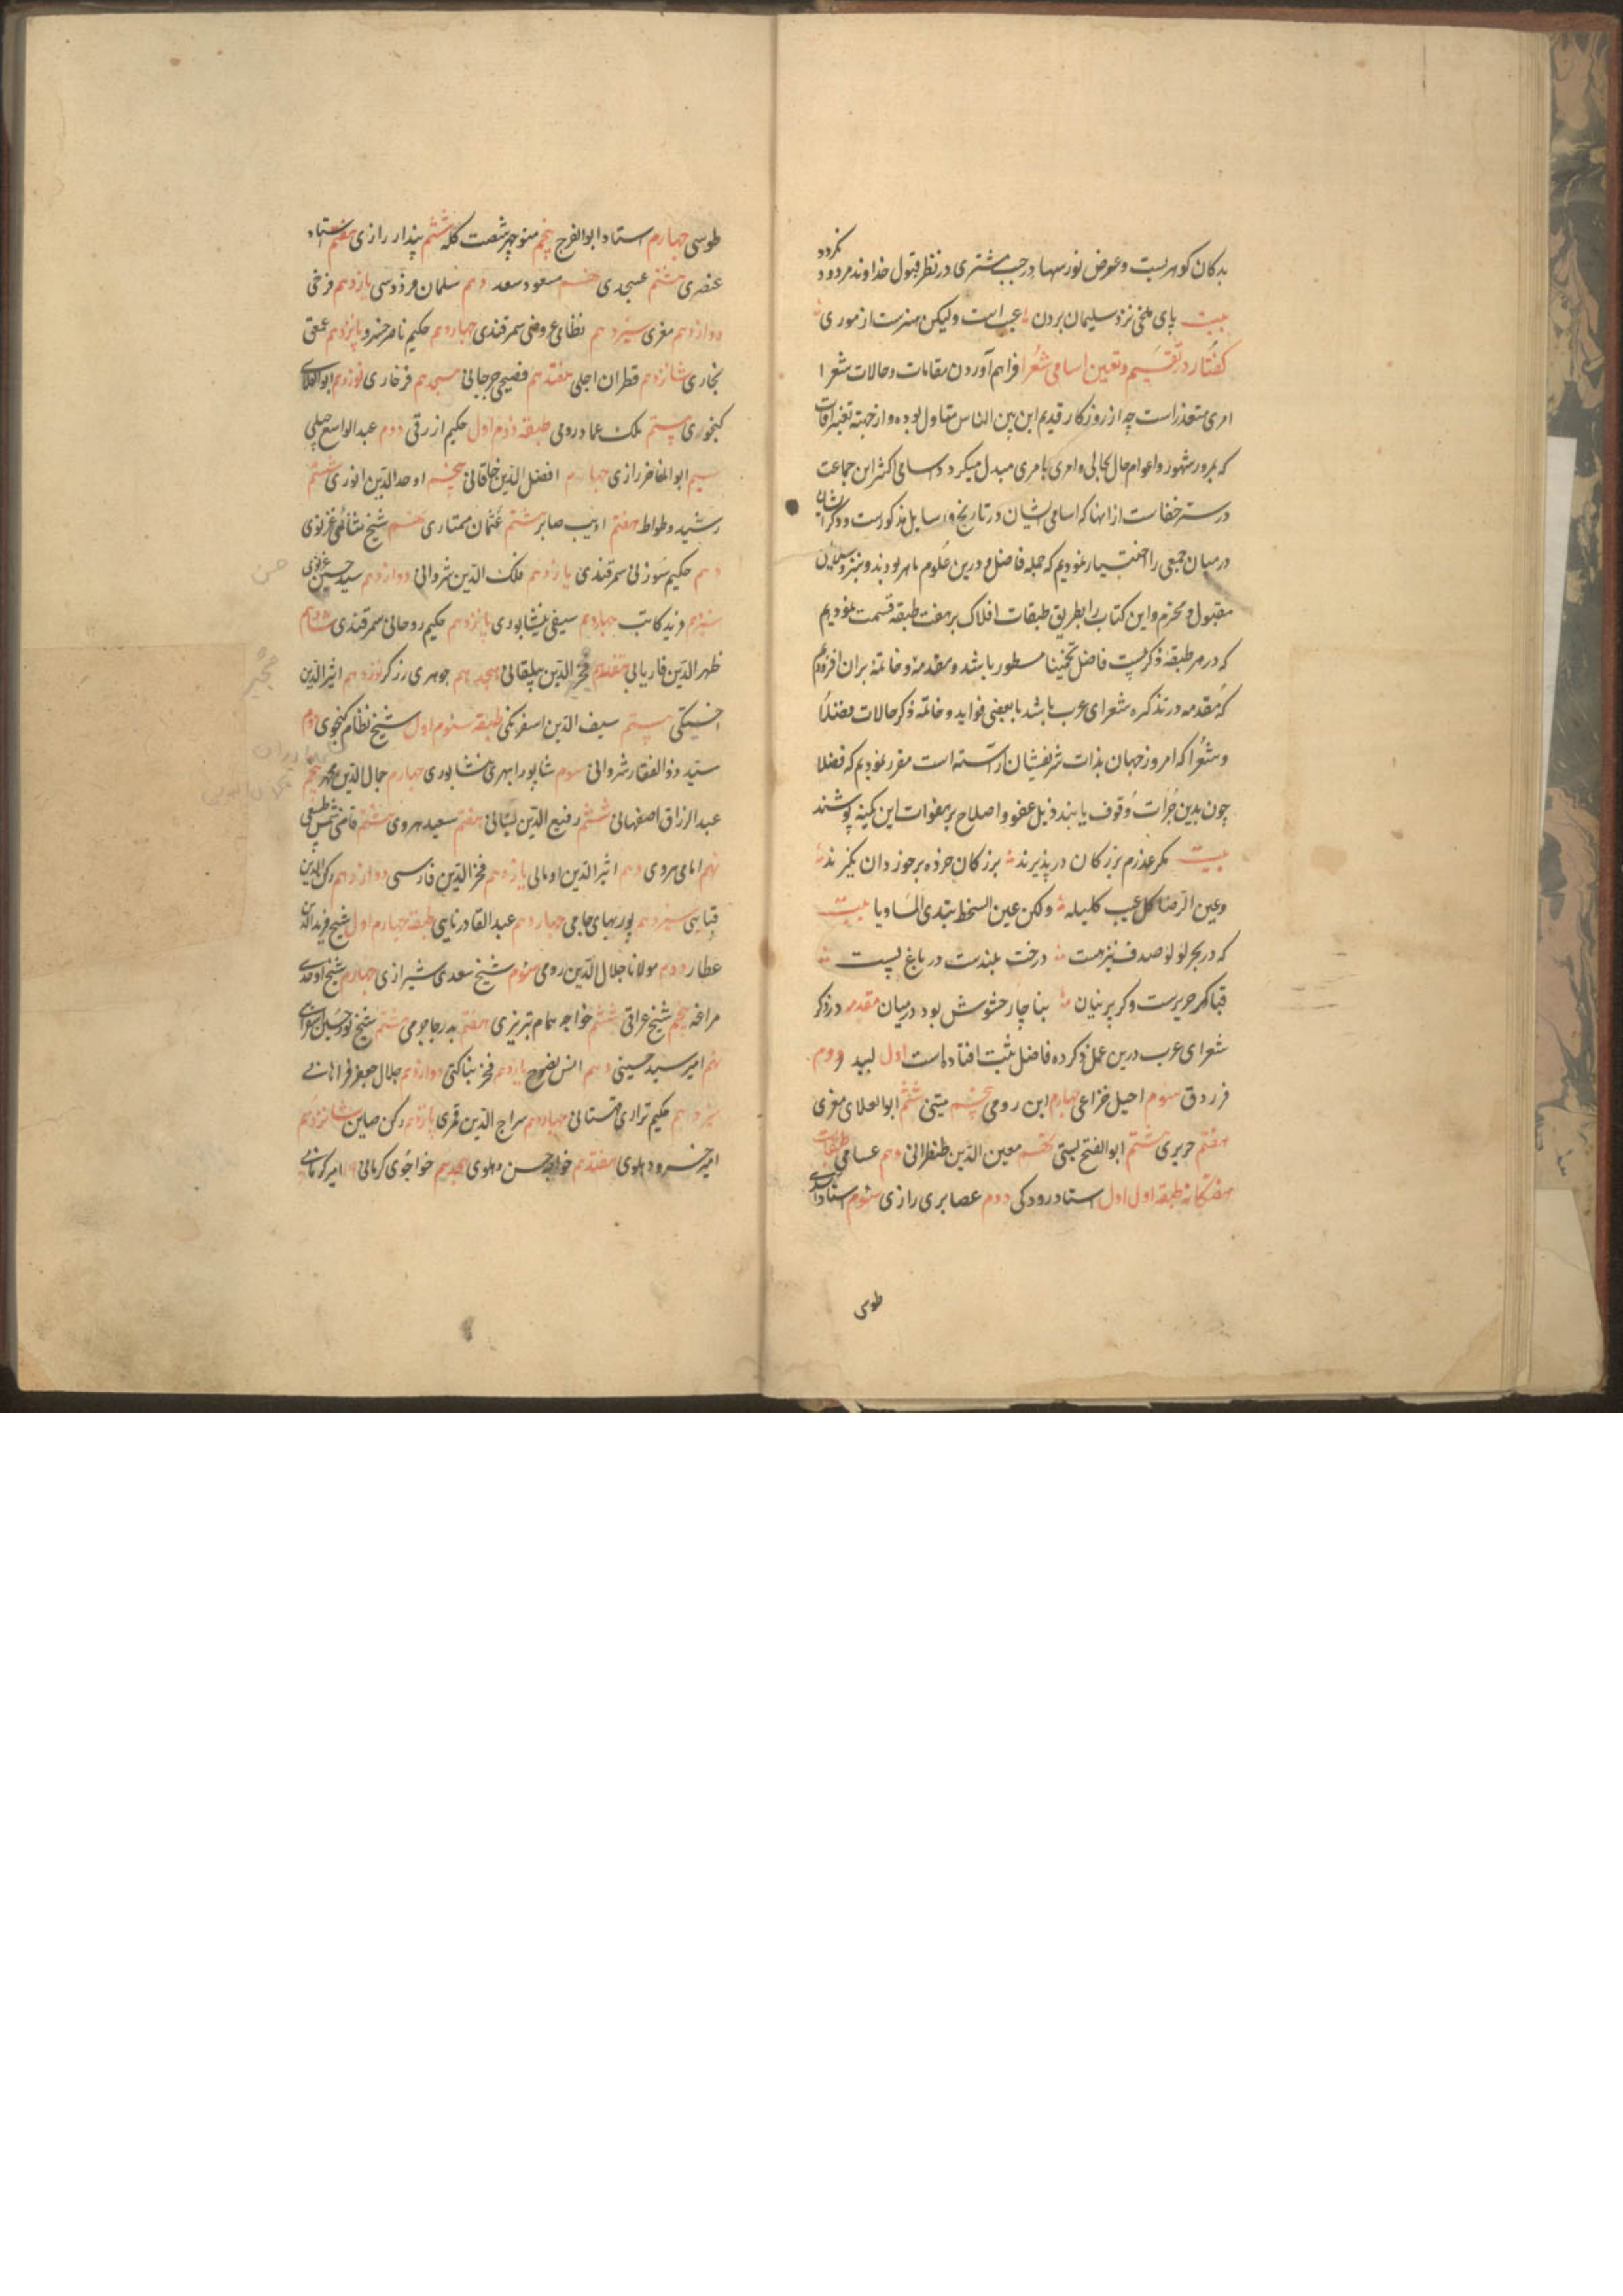 نکردد
بدکان کوهریست وعرض نور سها در جنب مشتری در نظر قبول خداوند مردود
بیت پای ملخی نزد سلیمان بردن عیب است ولیکن هنرست از موری
کفتار در تقسیم وتعین اسامی شعرا فراهم آوردن مقامات وحالات شعرا
امری متعذر است چه از روزکار قدیم این بین الناس متداول بوده واز جهته تغیرات
که بمرور شهور واعوام حال بحالی وامری بامری مبدل میکردد اسامی اکثر این جماعت
در ستر خفاست از انها که اسامی ایشان در تاریخ ورسایل مذکورست ودکر ایشان
در میان جمعی را اختیار نمودیم که جمله فاضل ودرین علوم ماهر بودند وبنزد سلاطین
مقبول ومحترم واین کتاب را بطریق طبقات افلاک بر هفت طبقه قسمت نمودیم
که در هر طبقه ذکر بیست فاضل تخمینا مسطور باشد ومقدمه وخاتمه بران افزودیم
که مقدمه در تذکره شعرای عرب باشد با بعضی فواید وخاتمه ذکر حالات فضلا
وشعرا که امروز جهان بذات شریفشان آراسته است مقرر نمودیم که فضلا
چون بدین جرات وقوف یابند ذیل عفو واصلاح بر هفوات این کمینه پوشند
بیت مکر عذرم بزرکان در پذیرند بزرکان خرده بر خوردان نکیرند
وعین الرضا کل عیب کلیله ولکن عین السخط تبتدی المساویا بیت
که در بحر لولو صدف نیز هست درخت بلندست در باغ پست
قبا کر حریرست وکر پرنیان بنا چار حشوش بود در میان مقدمه در ذکر
شعرای عرب درین عمل ذکر ده فاضل ثبت افتاده است اول لبید دووم
فرزدق سئوم دعبل خزاعی چهارم ابن رومی پنجم متنبی ششم ابوالعلای معری
هفتم حریری هشتم ابوالفتح بستی نهم معین الدین طنطرانی دهم عسامی طبقات
هفتکانه طبقه اول اول استاد رودکی دووم عصایری رازی سئوم استاد اسدی
طوسی
طوسی چهارم استاد ابوالفرج پنجم منوچهر شصت کله ششم پندار رازی هفتم استاد
عنصری هشتم عسجدی نهم مسعود سعد دهم سلمان فردوسی یازدهم فرخی
دوازدهم معزی سیزدهم نظامی عروضی سمرقندی چهاردهم حکیم ناصر خسرو پانزدهم عمعق
بخاری شانزدهم قطران اجلی هفتدهم فصیحی جرجانی هیجدهم فرخاری نوزدهم ابوالعلای
کنجوری بیستم ملک عماد رومی طبقه دووم اول حکیم ازرقی دووم عبدالواسع جبلی
سیم ابوالمفاخر رازی چهارم افضل الدین خاقانی پنجم اوحد الدین انوری ششم
رشید وطواط هفتم ادیب صابر هشتم عثمان مختاری نهم شیخ سنائی غزنوی
دهم حکیم سوزنی سمرقندی یازدهم فلک الدین شروانی دوازدهم سید حسین غزنوی
سیزدهم فرید کاتب چهاردهم سیفی نیشابوری پانزدهم حکیم روحانی سمرقندی شانزدهم
ظهر الدین فاریابی هفتدهم فخر الدین بیلقانی هیجدهم جوهری زرکر نوزدهم اثیر الدین
اخسیکتی بیستم سیف الدین اسفرنکی طبقه سئوم اول شیخ نظام کنجوی دوم
سید ذوالفقار شروانی سوم شاپور ابهری نیشابوری چهارم جمال الدین محمد پنجم
عبدالرزاق اصفهانی ششم رفیع الدین لنبانی هفتم سعید هروی هشتم قاضی شمس طبسی
نهم امامی هروی دهم اثیر الدین اومانی یازدهم فخر الدین فارسی دوازدهم رکن الدین
قبایی سیزدهم پور بهای جامی چهاردهم عبدالقادر نایینی طبقه چهارم اول شیخ فرید الدین
عطار دووم مولانا جلال الدین رومی سئوم شیخ سعدی شیرازی چهارم شیخ اوحدی
مراغه پنجم شیخ عراقی ششم خواجه همام تبریزی هفتم بدر جاجرمی هشتم
نهم امیر سید حسینی دهم یازدهم فخر بناکتی دوازدهم جلال جعفر فراهانی
سیزدهم حکیم نزاری قهستانی چهاردهم سراج الدین قمری پانزدهم رکن صاین شانزدهم
امیر خسرو دهلوی هفتدهم خواجه حسن دهلوی هجدهم خواجوی کرمانی ۱۹ امیر کرمانی